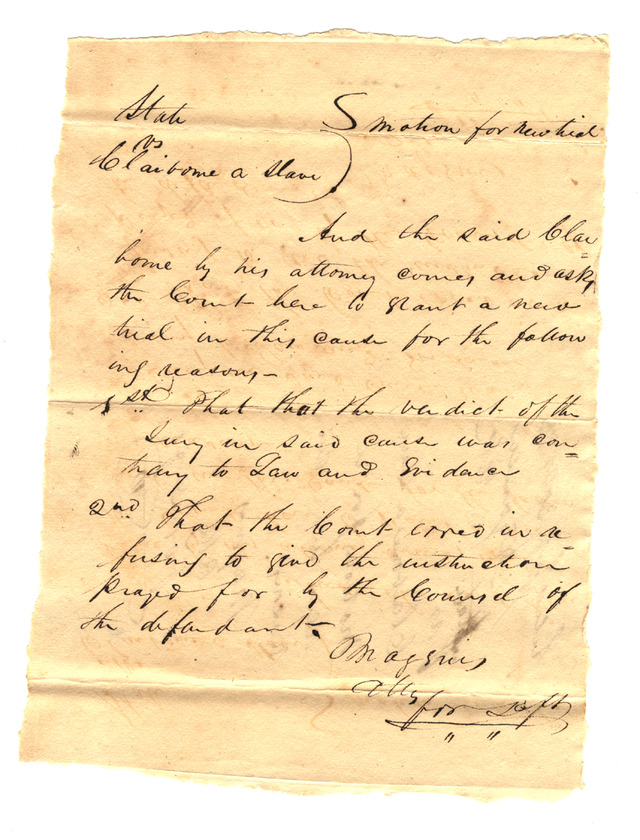 State motion for new trial
vs
Claiborne a slave
And the said Clai
borne by his attorney comes and asks
the Court here to grant a new
trial in this cause for the follow
ing reasons-
1st. That that the verdict of the
Jury in said cause was con=
trary to Law and Evidence
2nd That the Court erred in re=
fusing to give the instruction
prayed for by the Counsel of
the defendant.
Maggins
Atty
for Deft
" "